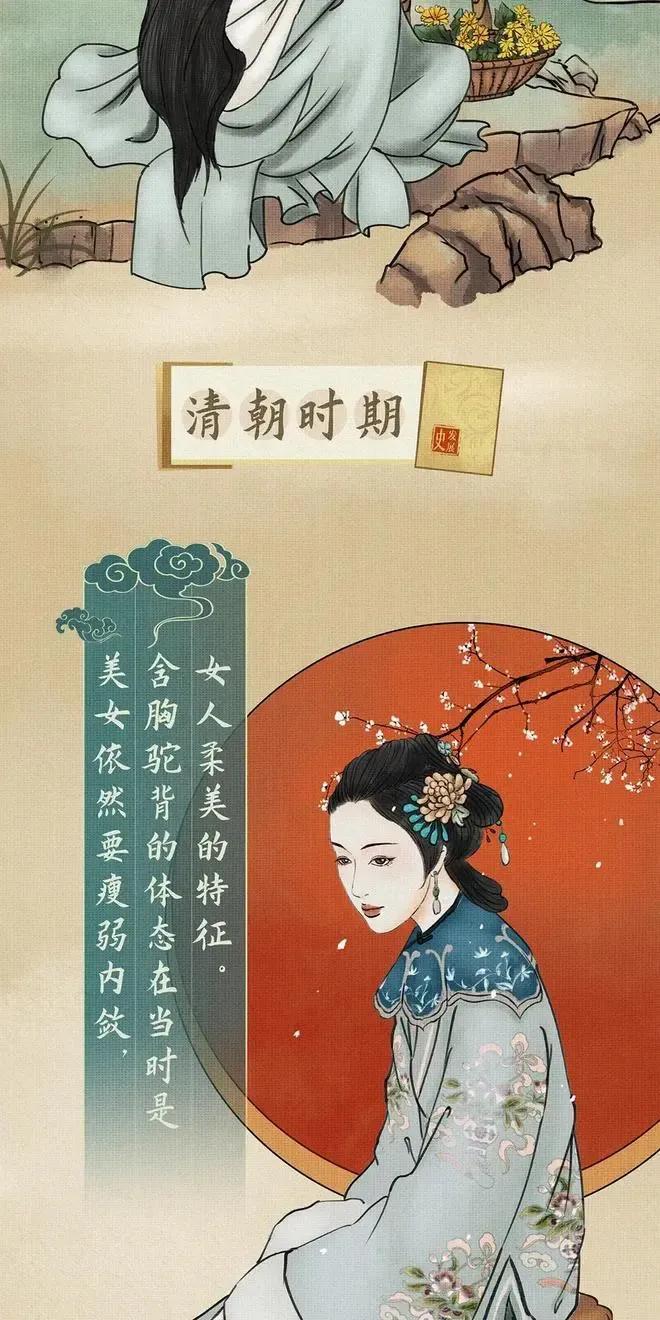 清朝时期
发展
史
美女依然要瘦弱内敛，
含胸驼背的体态在当时是
女人柔美的特征。